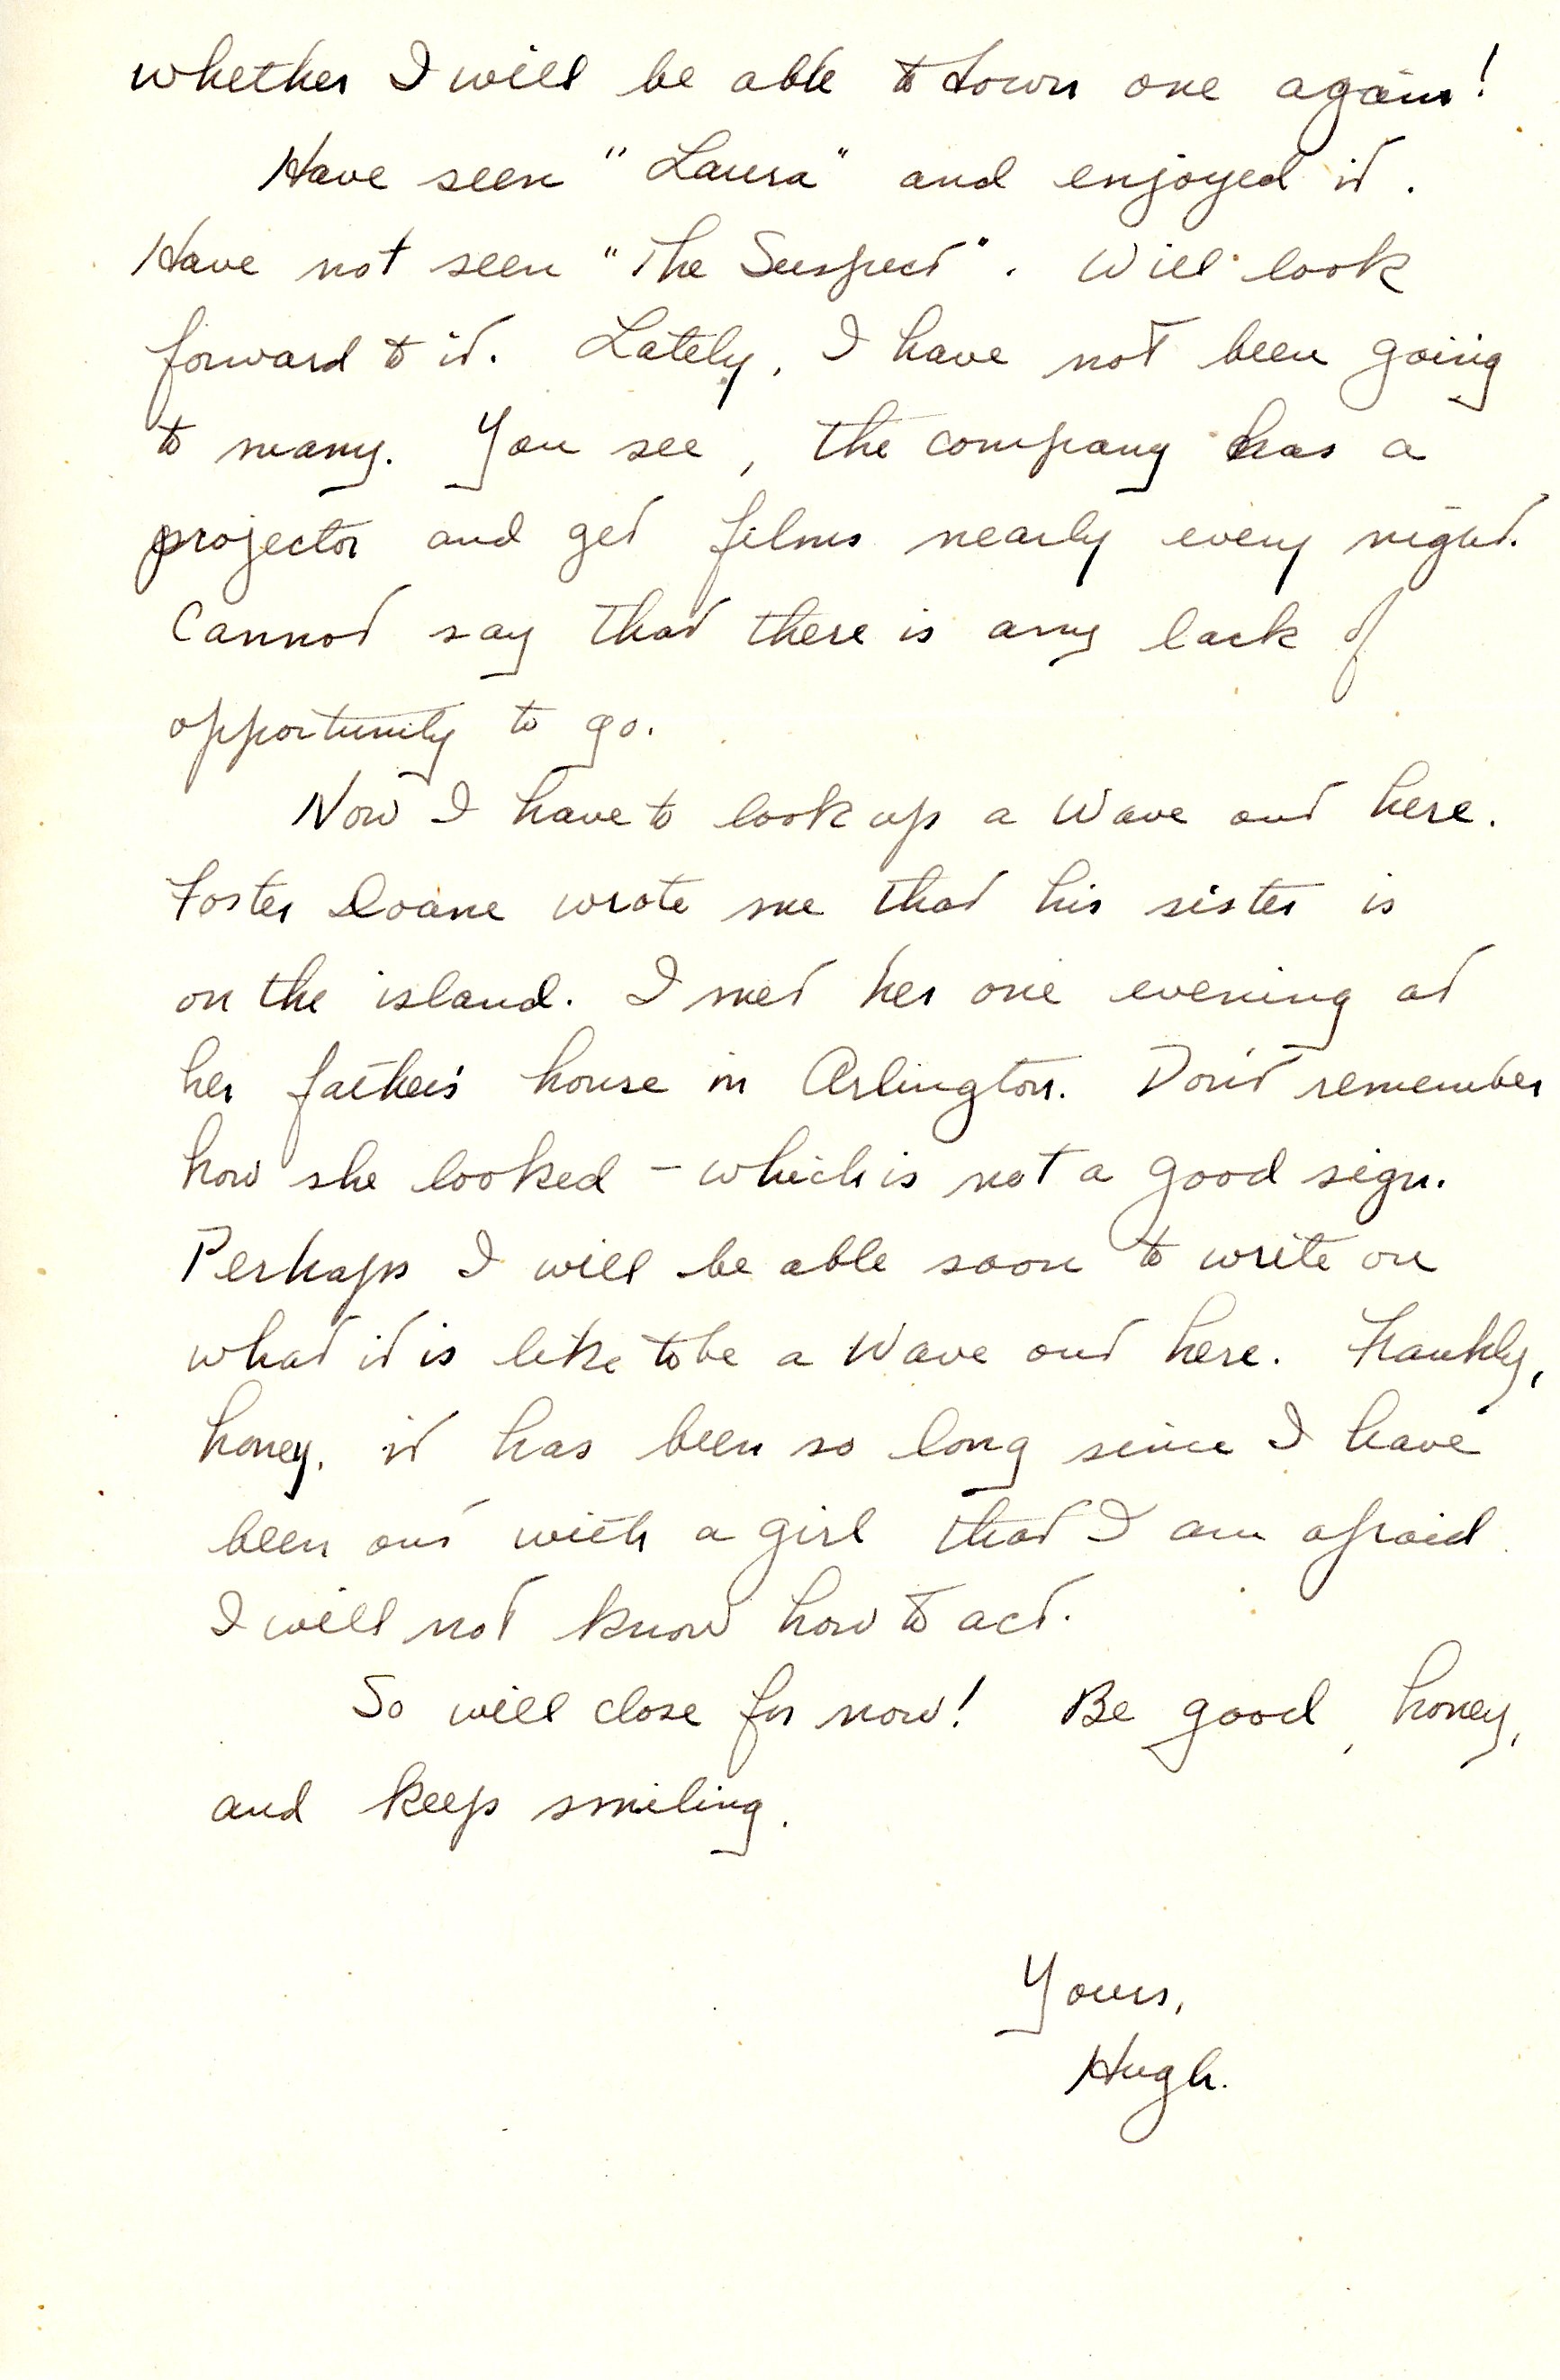 whether I will be able to down one again!
Have seen "Laura" and enjoyed it.
Have not seen "The Suspect". Will look
forward to it. Lately, I have not been going
to many. You see, the company has a
projector and get films nearly every night.
Cannot say that there is any lack of
opportunity to go.
Now I have to look up a Wave out here.
Foster Doane wrote me that his sister is
on the island. I met her one evening at
her father's house in Arlington. Don't remember
how she looked – which is not a good sign.
Perhaps I will be able soon to write on
what it is like to be a Wave out here. Frankly,
honey, it has been so long since I have
been out with a girl that I am afraid
I will not know how to act.
So will close for now! Be good, honey,
and keep smiling.
Yours,
Hugh.